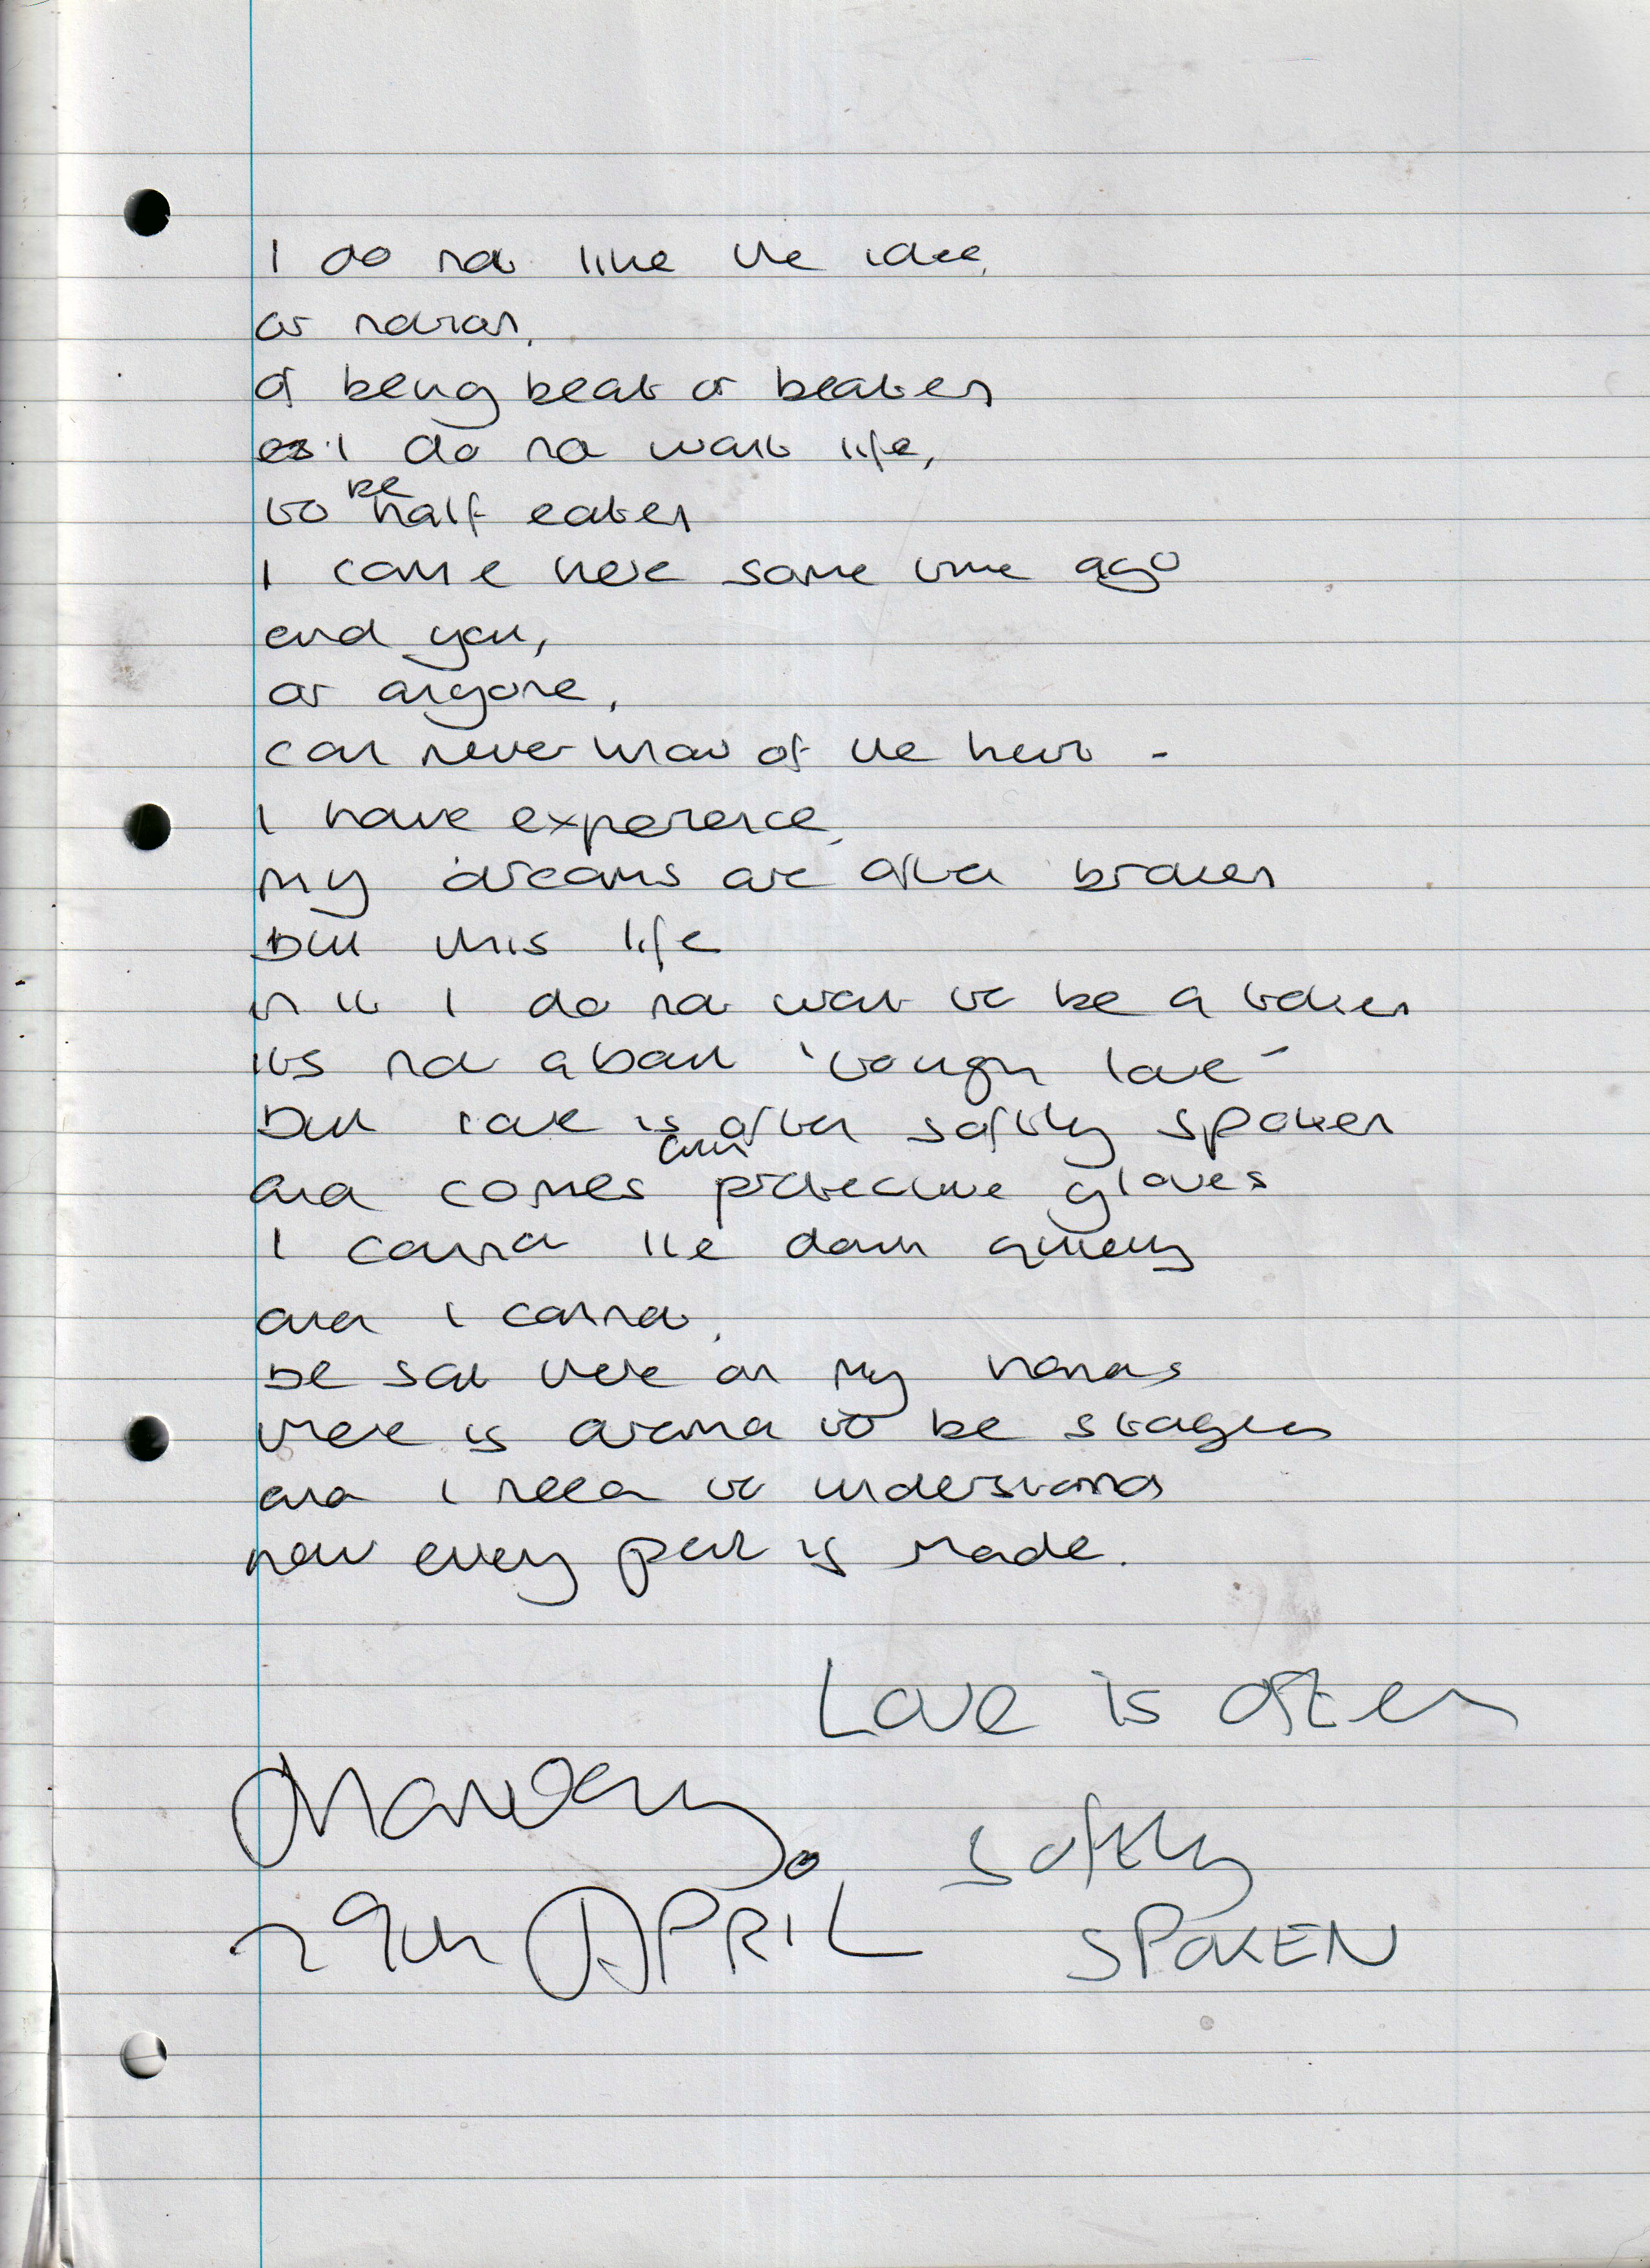 I do not like the idea,
or notion,
of being beat or beaten
as I do no want life,
to be half eaten
I came here some time ago
and you,
or anyone,
can never know of the hour -
I have experience,
my dreams are often broken
but this life
in it I do not want to be a token
its not about 'tough love'
but love is often softly spoken
and comes with protective gloves
I cannot lie down quietly
and I cannot,
be sat here on my hands
there is drama to be staged
and I need to understand
how every part is made.
Love is often
softly
29th APRIL
SPOKEN